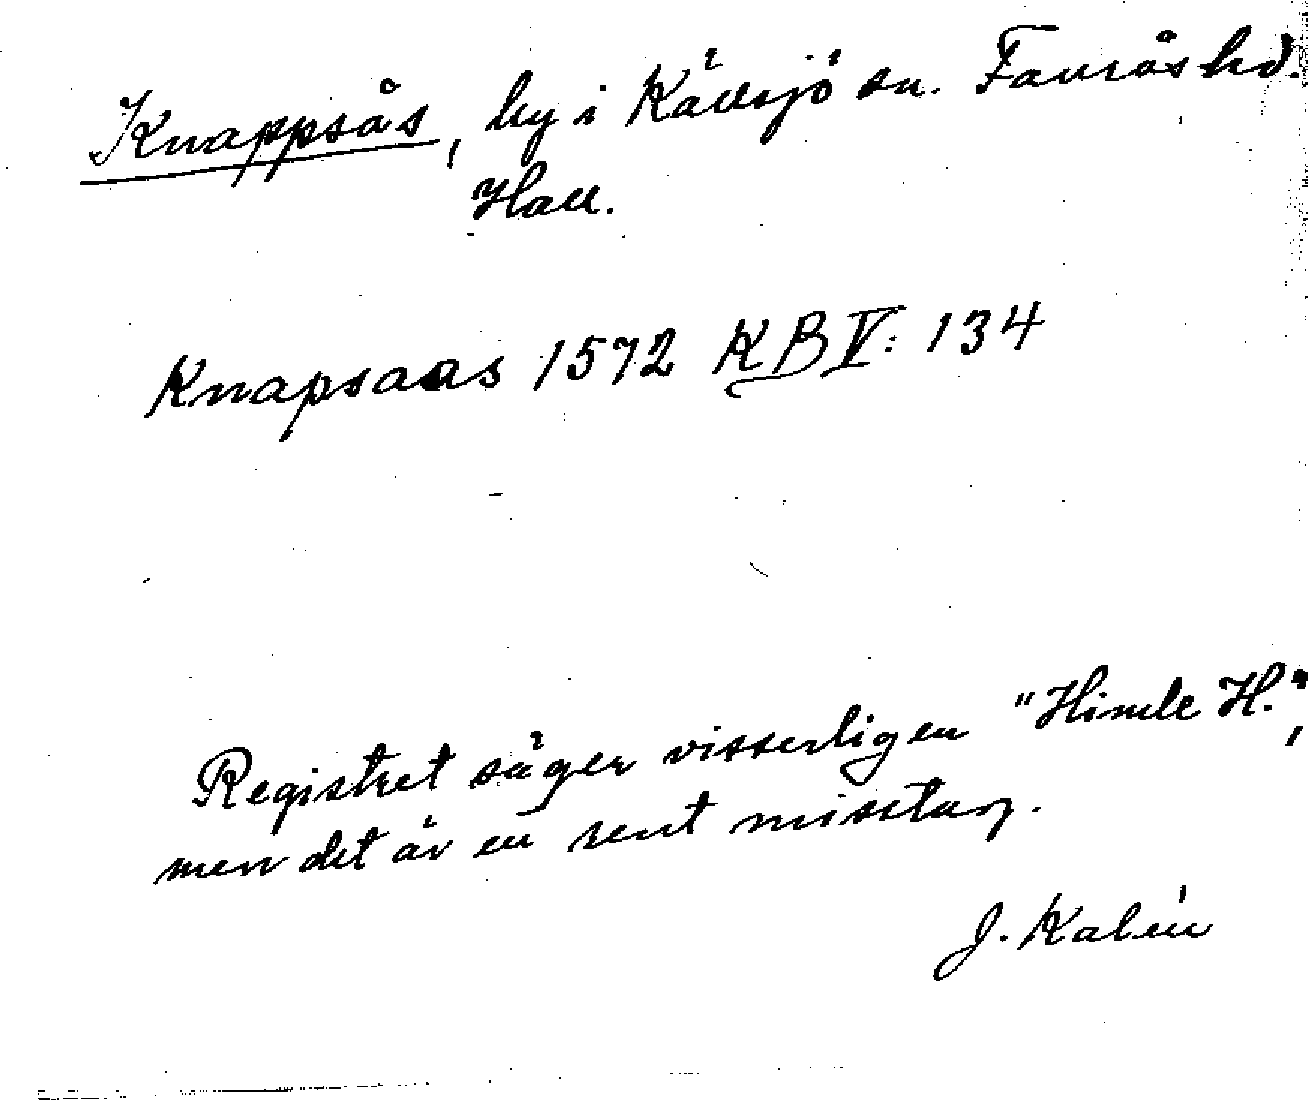 Knappsås, by i Källsjö sn. Faurås hd.
Hall.
Knapsaas 1572 KB V: 134
Registret säger visserligen "Himle H.",
men det är en rent misstag.
J. Kalén